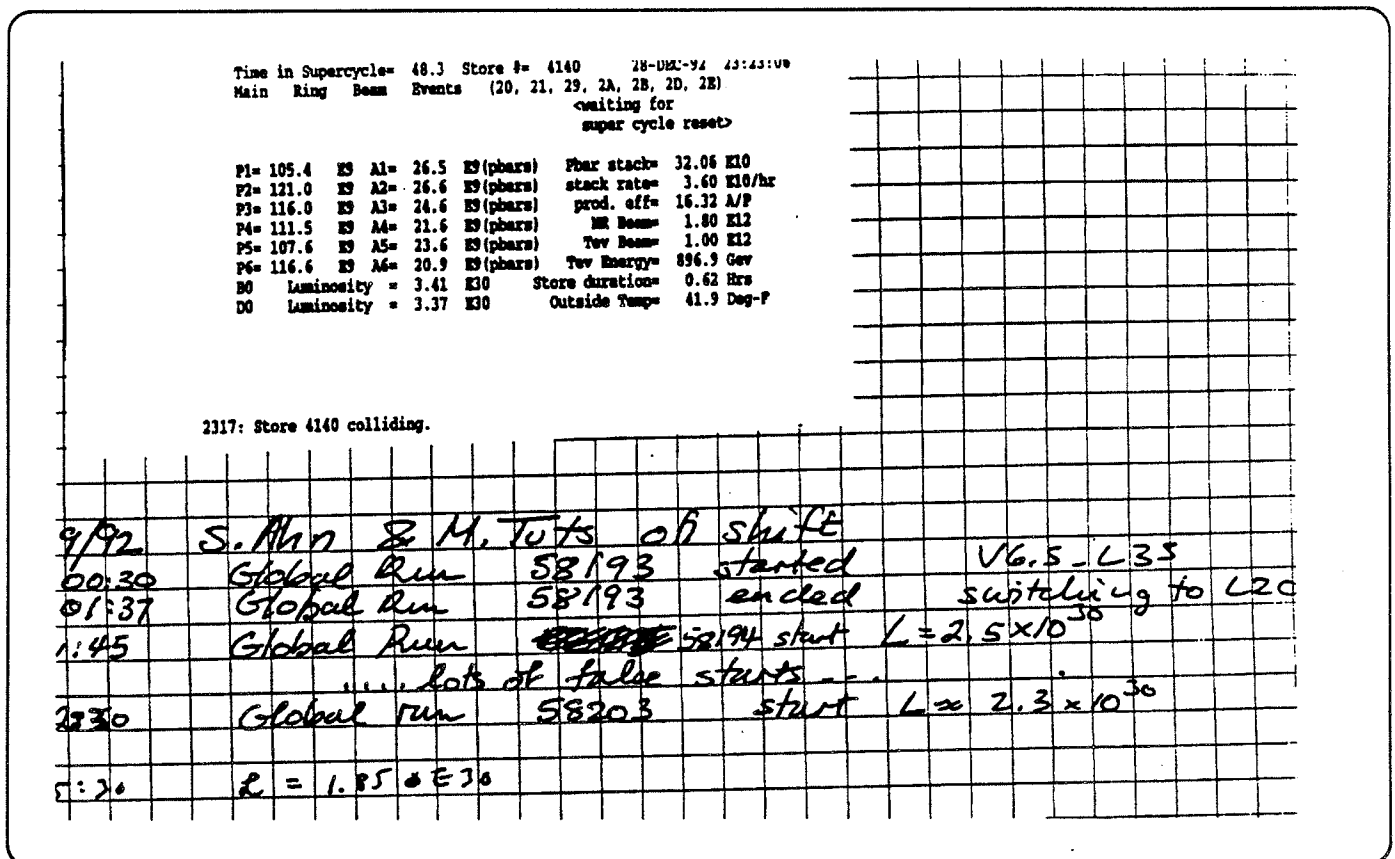 Time in Supercycle= 48.3 Store #= 4140 28-DEC-92 23:23:06
Main Ring Beam Events (20, 21, 29, 2A, 2B, 2D, 2E)
<waiting for
super cycle reset>
P1= 105.4 E9 A1= 26.5 E9(pbars) Pbar stack= 32.06 E10
P2= 121.0 E9 A2= 26.6 E9(pbars) stack rate= 3.60 E10/hr
P3= 116.0 E9 A3= 24.6 E9(pbars) prod. eff= 16.32 A/P
P4= 111.5 E9 A4= 21.6 E9(pbars) MR Beam= 1.80 E12
P5= 107.6 E9 A5= 23.6 E9(pbars) Tev Beam= 1.00 E12
P6= 116.6 E9 A6= 20.9 E9(pbars) Tev Energy= 896.9 Gev
B0 Luminosity = 3.41 E30 Store duration= 0.62 Hrs
D0 Luminosity = 3.37 E30 Outside Temp= 41.9 Deg-F
2317: Store 4140 colliding.
9/92 S. Ahn & M. Tuts on shift
00:30 Global Run 58193 started V6.5_L35
01:37 Global Run 58193 ended switching to L20
1:45 Global Run 58194 start L = 2.5 x 10^30
..... lots of false starts ....
Global run 58203 start L ≈ 2.3 x 10^30
5:30 L = 1.85 E30